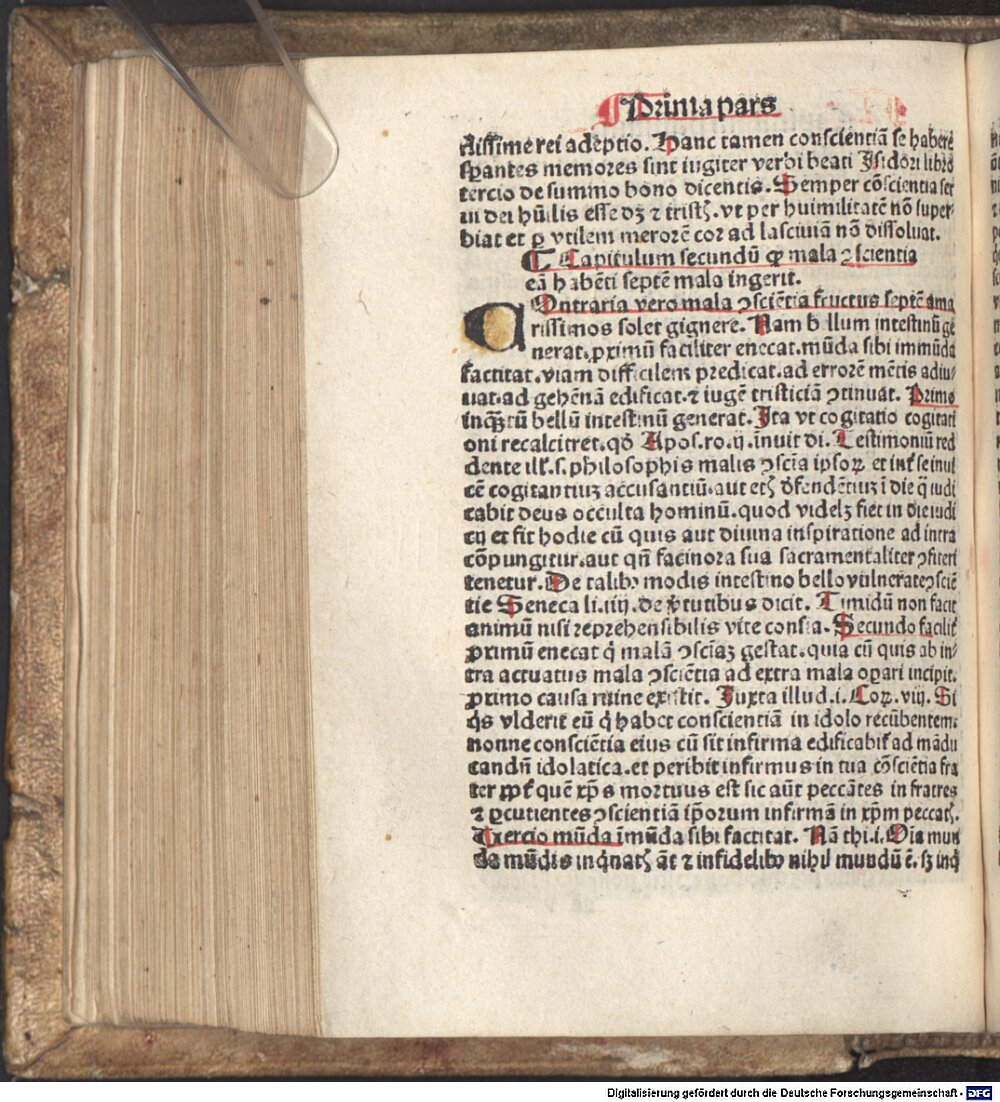 Prima pars
dissime rei adeptio. Hanc tamen conscientiā se habere
sꝑantes memores sint iugiter verbi beati Isidori libro
tercio de summo bono dicentis. Semper cōscientia ser
ui dei hūilis esse dꝫ ⁊ tristꝭ. vt per huimilitatē nō super-
biat et ꝑ vtilem merorē cor ad lasciuiā nō dissoluat.
Capitulum secundū ꝙ mala ꝯscientia
eā habēti septē mala ingerit.
COntraria vero mala ꝯsciētia fructus septē ama
rissimos solet gignere. Nam bellum intestinū ge
nerat. proximū faciliter enecat. mūda sibi immūda
factitat. viam difficilem predicat. ad errorē mētis adiu-
uat. ad gehēnā edificat. ⁊ iugē tristiciā ꝯtinuat. Primo
inquātū bellū intestinū generat. Ita vt cogitatio cogitati
oni recalcitret. qō Apos. ro. ij. inuit di. Testimoniū red
dente ill'. s. philosophis malis ꝯscīa ipsoꝝ et int' se inui
cē cogitantiuꝫ accusantiū. aut etꝭ defendētiuꝫ ī die q̄ iudi
cabit deus occulta hominū. quod videlꝫ fiet in die iudi
cij et fit hodie cū quis aut diuina inspiratione ad intra
cōpungitur. aut qn̄ facinora sua sacramentaliter ꝯfiteri
tenetur. De talibꝰ modis intestino bello vulnerate ꝯsciē
tie Seneca li. iiij. de v̓tutibus dicit. Timidū non facit
animū nisi reprehensibilis vite consīa. Secundo facilit'
ꝓximū enecat q̇ malā ꝯsciāꝫ gestat. quia cū quis ab in-
tra actuatus mala ꝯsciētia ad extra mala oꝑari incipit.
ꝓximo causa ruine existit. Juxta illud. i. Coꝝ. viij. Si
q̇s viderit eū q̇ habet conscientiā in idolo recūbentem.
nonne consciētia eius cū sit infirma edificabit' ad mādu
candū idolatica. et peribit infirmus in tua cōsciētia fra
ter ꝓpt' quē xp̄s mortuus est sic aūt peccātes in fratres
⁊ ꝑcutientes ꝯscientiā ip̄orum infirmā in xp̄m peccatꝭ.
Tercio mūda īmūda sibi factitat. Nā thi. i. Oīa mun
da mūdis inq̇natꝭ āt ⁊ infidelibꝰ nihil mundū ē. sꝫ inq̇
Digitalisierung gefördert durch die Deutsche Forschungsgemeinschaft - DFG